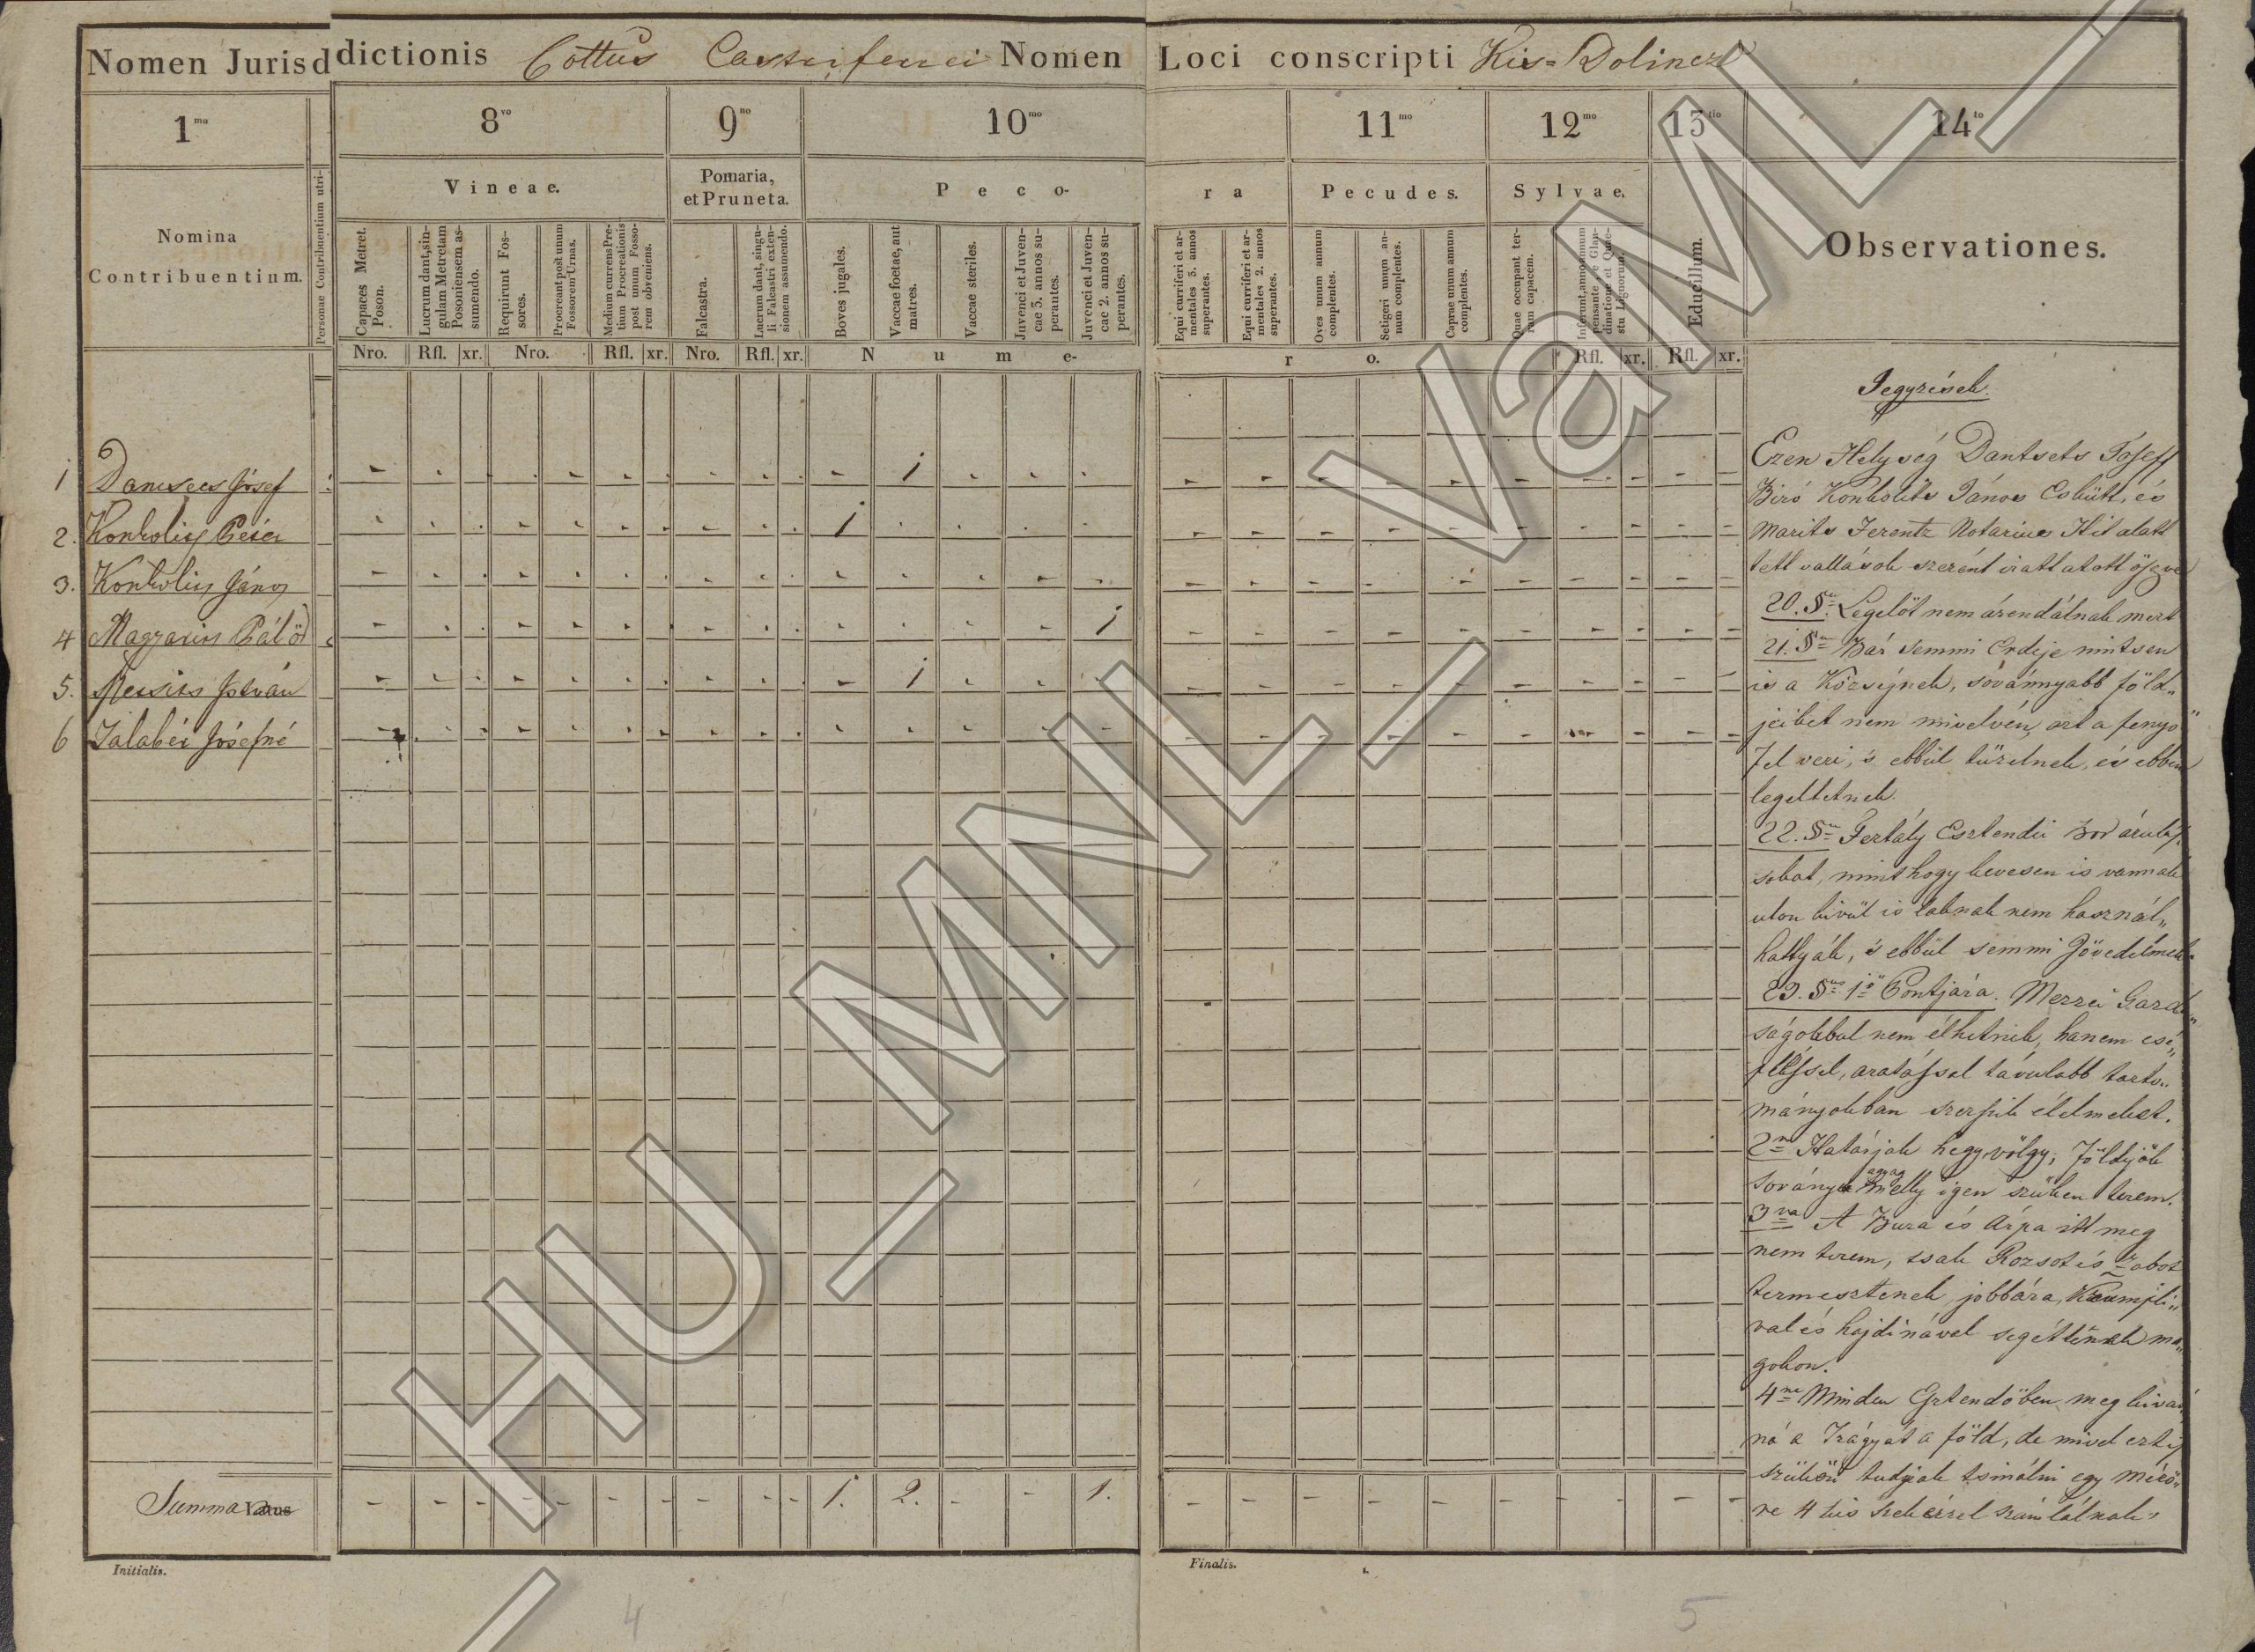 Nomen Jurisdictionis Cottus Castriferrei Nomen Loci conscripti Kis-Dolincz
1mo 8vo 9no 10mo 11mo 12mo 13tio 14to
Nomina Contribuentium.
Personae Contribuentium utri-
Vineae.
Capaces Metret. Poson.
Lucrum dant, singulam Metretam Posoniensem assumendo.
Requirunt Fossores.
Procreant post unum Fossorem Urnas.
Medium currens Pretium Procreationis post unum Fossorem obveniens.
Pomaria, et Pruneta.
Falcastra.
Lucrum dant, singuli Falcastri extensionem assumendo.
Peco-
Boves jugales.
Vaccae foetae, aut matres.
Vaccae steriles.
Juvenci et Juvencae 3. annos superantes.
Juvenci et Juvencae 2. annos superantes.
ra
Equi curriferi et armentales 3. annos superantes.
Equi curriferi et armentales 2. annos superantes.
Pecudes.
Oves unum annum complentes.
Setigeri unum annum complentes.
Caprae unum annum complentes.
Sylvae.
Quae occupant terram capacem.
Inferunt, anno unum pensante e Glandinatione et Quaestu Lignorum.
Educillum.
Observationes.
Nro. Rfl. xr. Nro. Rfl. xr. Nro. Rfl. xr. Nume-
ro. Rfl. xr. Rfl. xr.
1 Dancsecs Jósef 1
2. Konkolics Péter 1
3. Konkolics János
4 Magyarics Pál öz 1
5. István 1
6 Talabér Jósefné
Summa Latus 1. 2. 1.
Initialis.
Finalis.
4
5
Jegyzések.
Ezen Helység Dantsets Josef
Biró Konkolits János Eskütt, és
Marits Ferentz Notarius Hit alatt
tett vallások szerént irattatott öszve
20. §u Legelőt nem árendálnak mert
21. §u Bár semmi Erdeje nintsen
is a Községnek, sovánnyabb föld„
jeiket nem mivelvén, azt a fenyő
fel veri, s ebbül tüzelnek, és ebben
legeltetnek.
22. §u Fertály Esztendei Bor árulás
sokat, mint hogy kevesen is vannak
uton kívül is laknak nem használ„
hattyák, s ebbül semmi Jövedelmek
23. §us 1ő Pontjára. Mezzei Gazda„
ságokbul nem élhetnek, hanem csé„
pléssel, aratással távulabb tarto„
mányokban szerzik élelmeket.
2n Határjok hegy völgy, Földjök
sovány agyag melly igen szüken terem.
3va A Buza és Árpa itt meg
nem terem, tsak Rozsot és zabot
termesztenek, jobbára, Krumpli„
val és hajdinával segéttenek ma„
gokon.
4ne Minden Esztendőben meg kiván„
ná a Trágyát a föld, de mivel ezt is
szüken tudják tsinálni egy mérő„
re 4 kis szekérrel számlálnak.
HU_MNL_VaML_